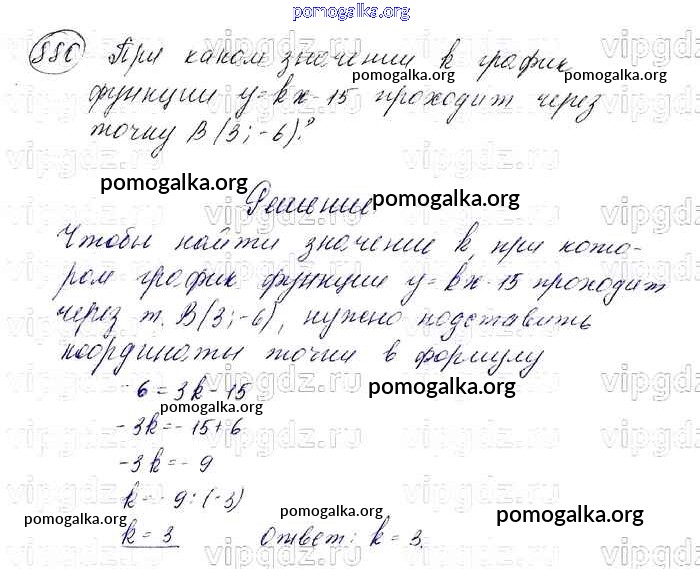 pomogalka.org
880 При каком значении k график
pomogalka.org pomogalka.org
функции y=kx-15 проходит через
точку B(3;-6)?
pomogalka.org
Решение
pomogalka.org
pomogalka.org
Чтобы найти значение k, при кото-
ром график функции y=kx-15 проходит
через т. B(3;-6), нужно подставить
координаты точки в формулу
-6=3k-15
pomogalka.org
pomogalka.org
-3k=-15+6
-3k=-9
k=-9:(-3)
pomogalka.org pomogalka.org pomogalka.org
k=3 Ответ: k=3.
vipgdz.ru